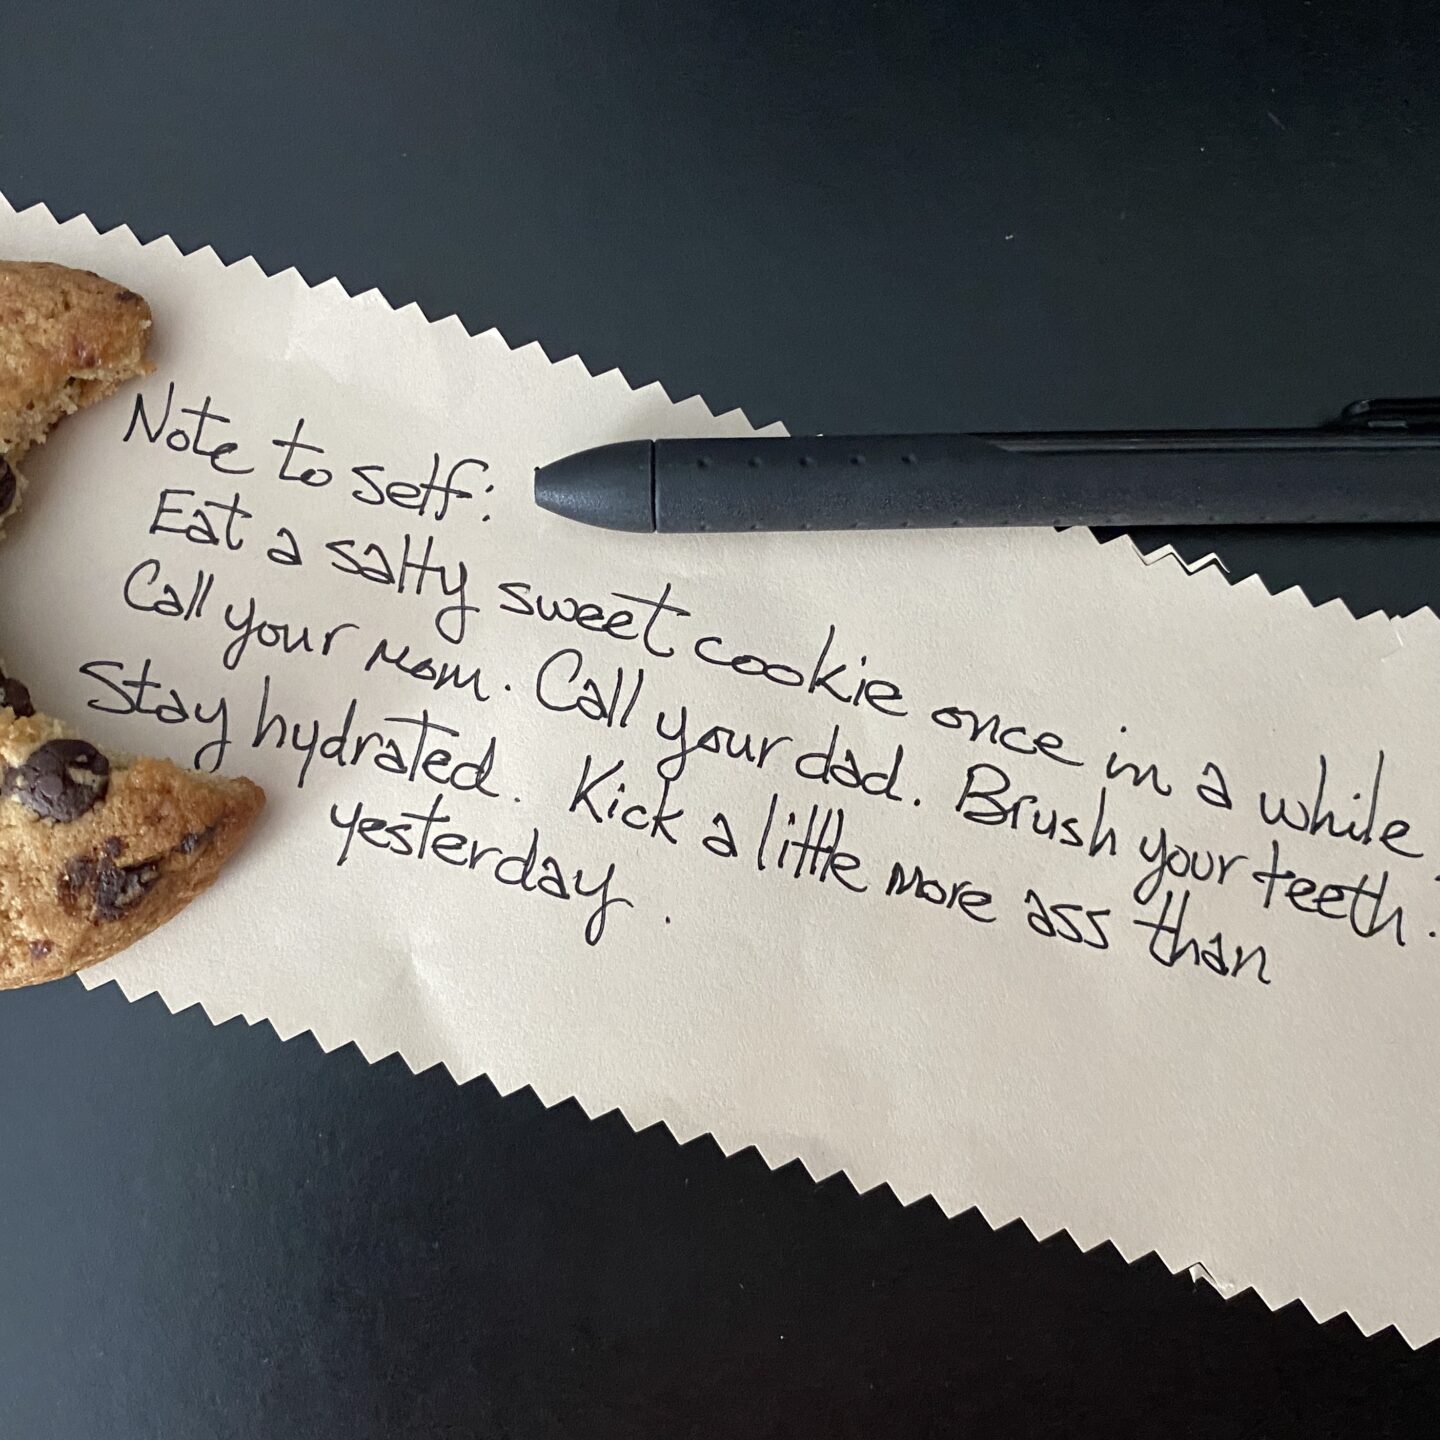 Note to self:
Eat a salty sweet cookie once in a while.
Call your mom. Call your dad. Brush your teeth.
Stay hydrated. Kick a little more ass than
yesterday.